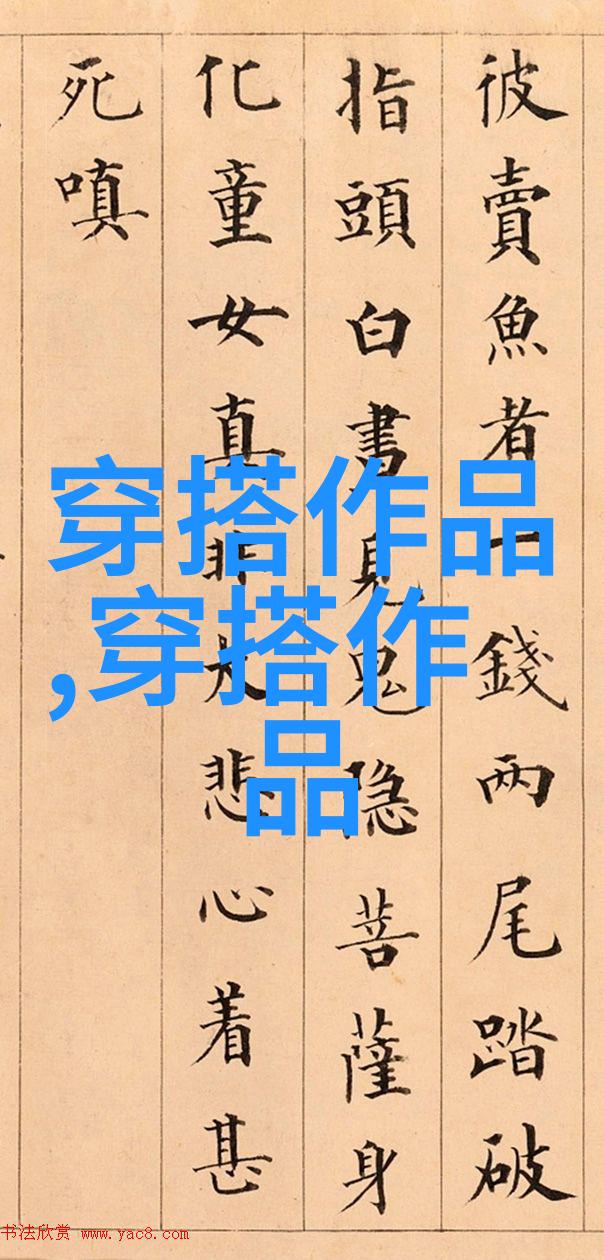 彼賣魚者一錢兩尾踏破
指頭白晝見鬼隐菩薩身
化童女真非大悲心着甚
死嗔
穿搭作品
,穿搭作
品
书法欣赏 www.yac8.com